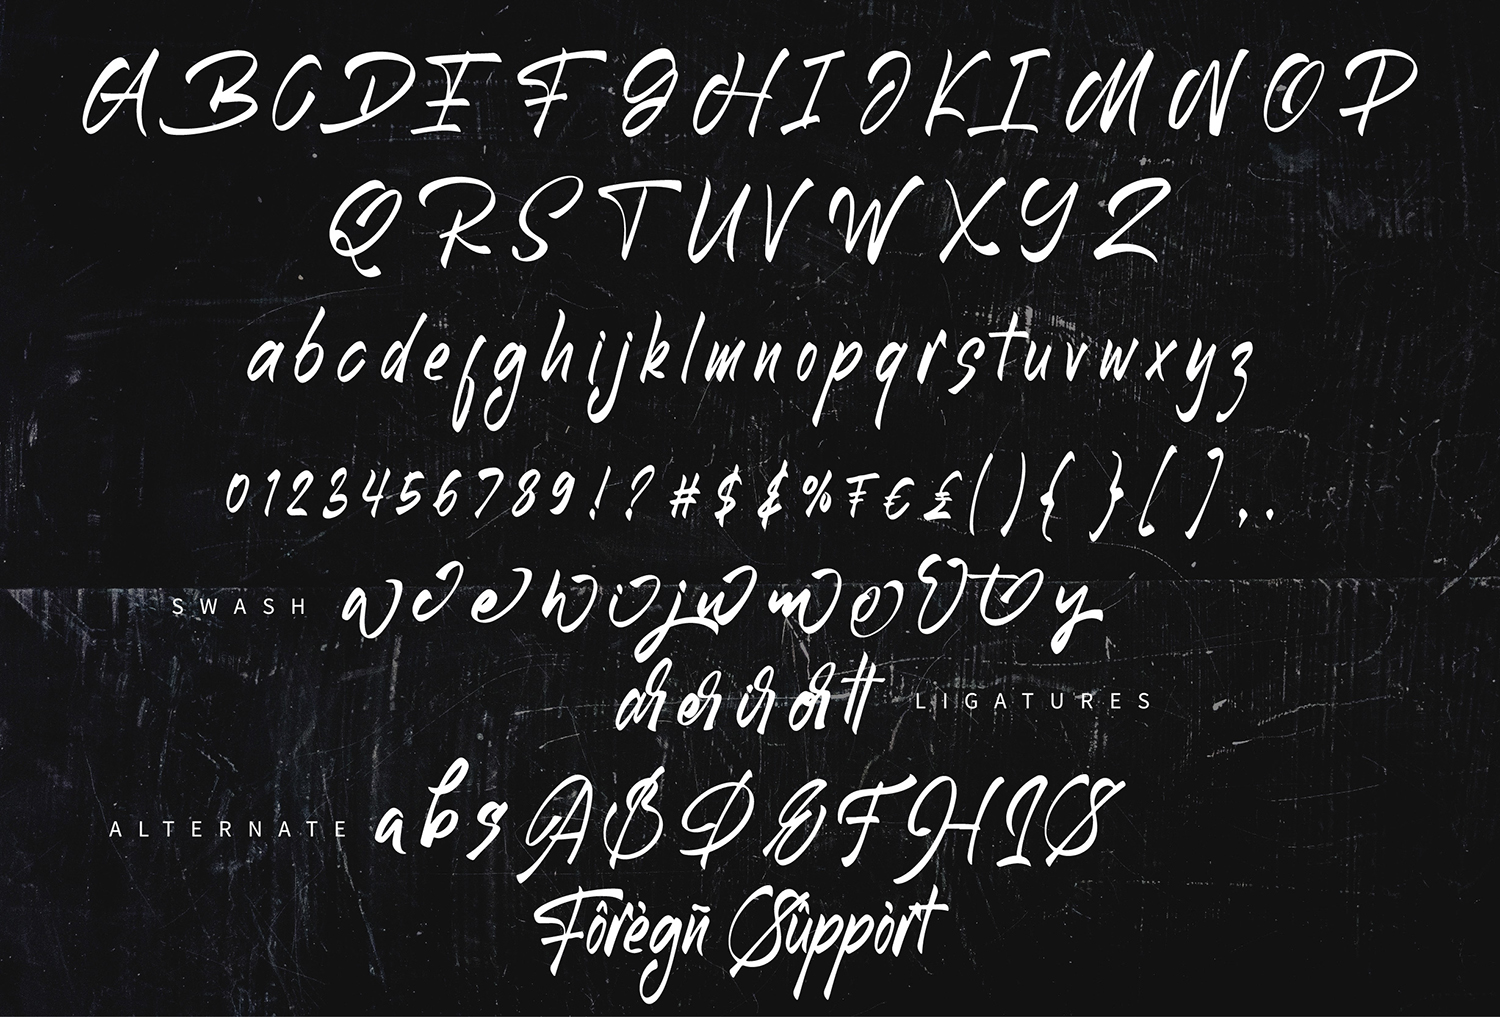 A B C D E F G H I J K L M N O P
Q R S T U V W X Y Z
a b c d e f g h i j k l m n o p q r s t u v w x y z
0 1 2 3 4 5 6 7 8 9 ! ? # $ & % ₣ € £ ( ) { } [ ] , .
SWASH a c e h i j u m o v t y
ar er ir or tt LIGATURES
ALTERNATE a b s A B D E F H I S
Fôrègñ Sûppòrt